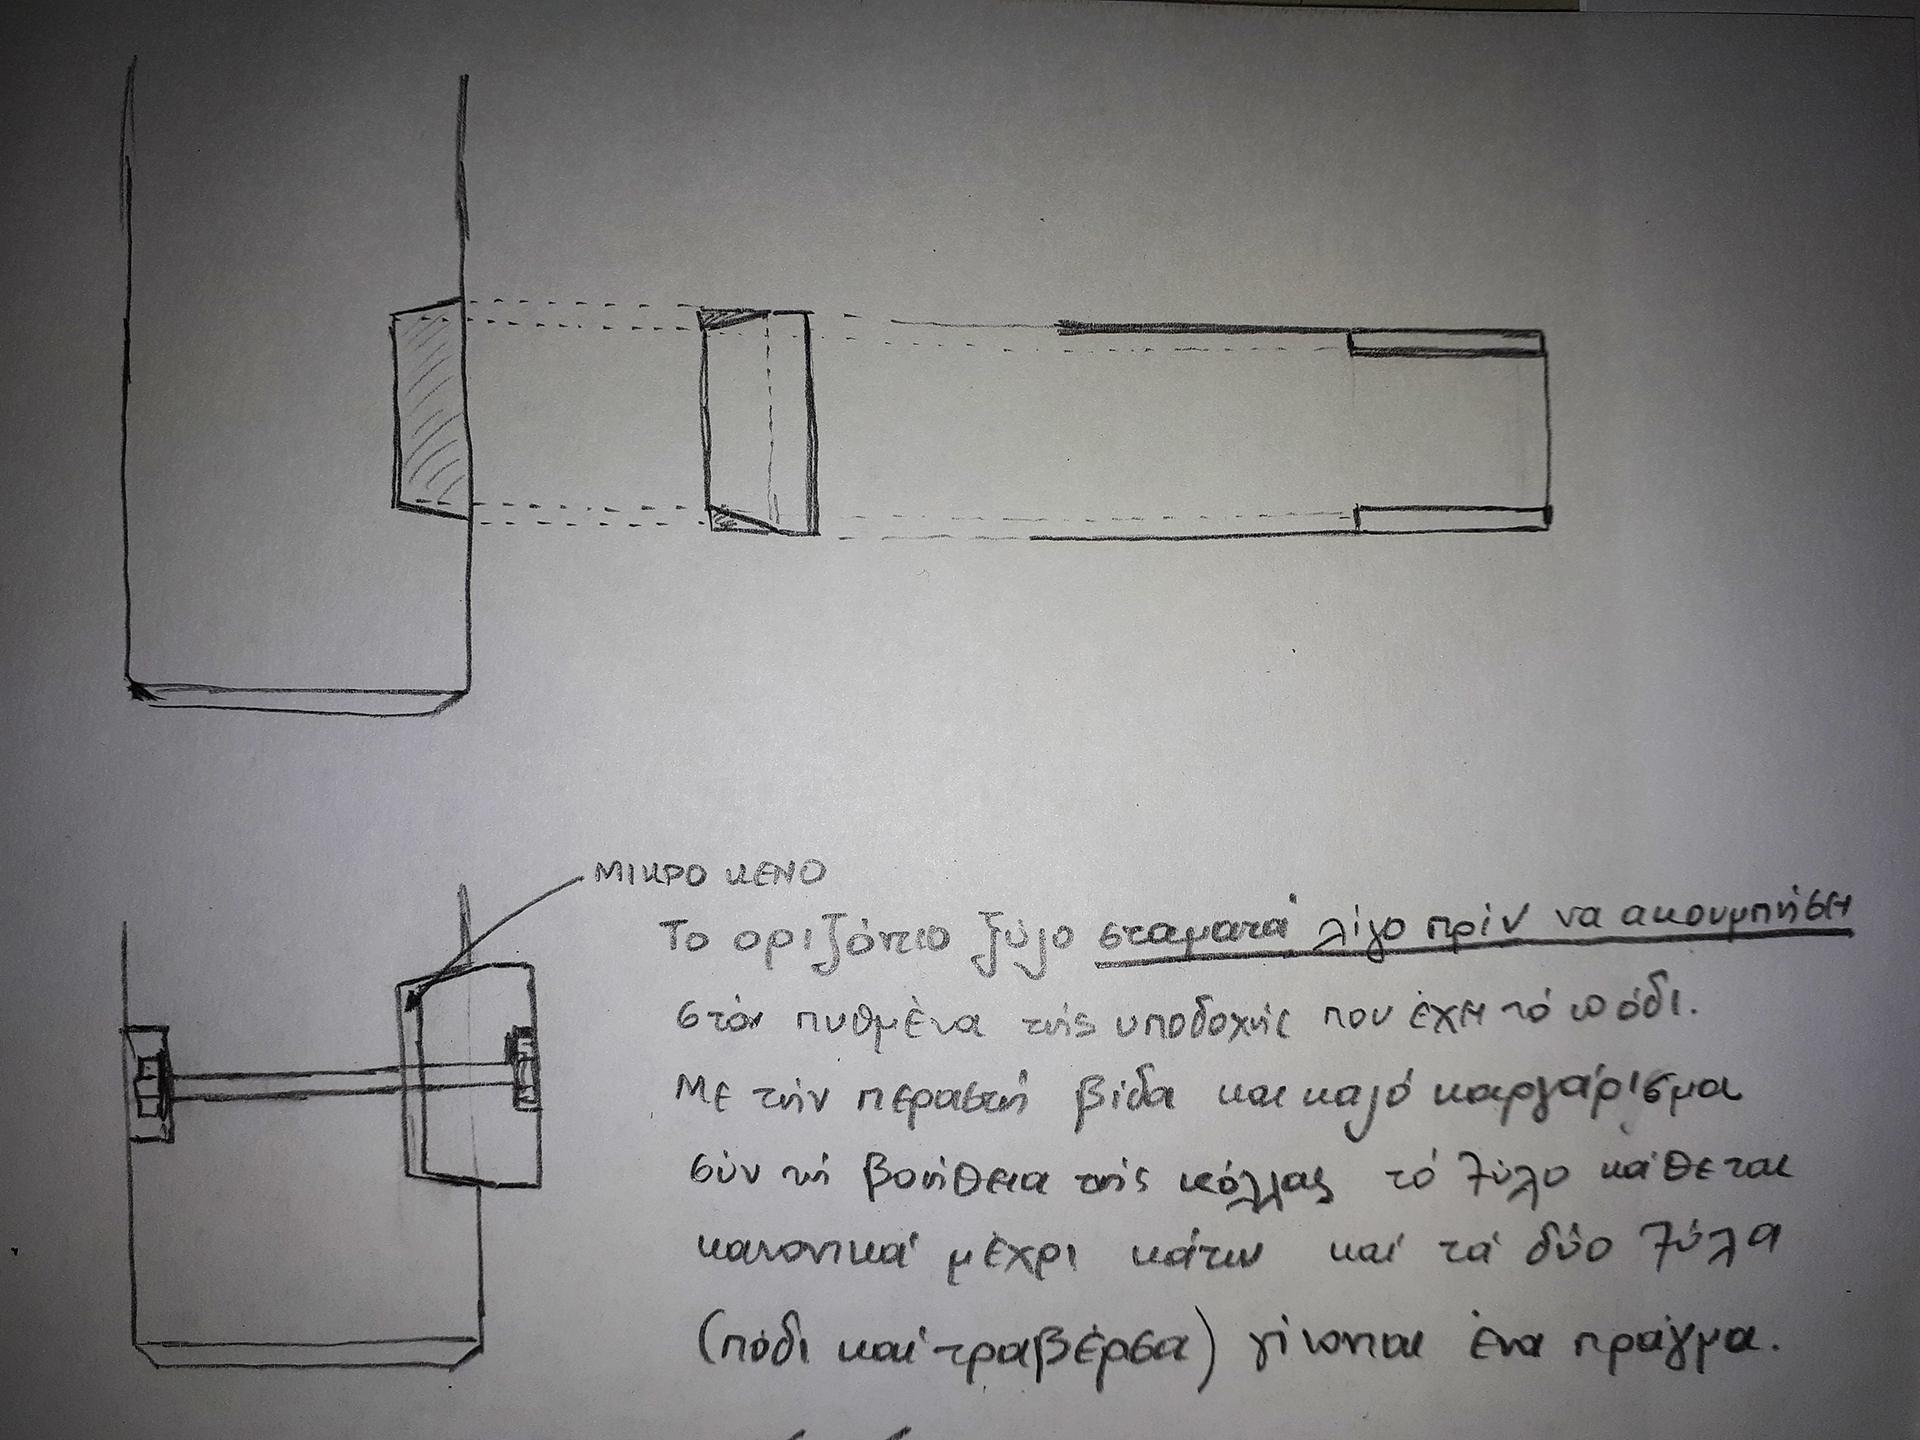 ΜΙΚΡΟ ΚΕΝΟ
Το οριζόντιο ξύλο σταματά λίγο πρίν να ακουμπήσει
στόν πυθμένα τής υποδοχής που έχει τό πόδι.
Με τήν περαστή βίδα και καλό καργάρισμα
σύν τή βοήθεια τής κόλλας τό ξύλο κάθεται
κανονικά μέχρι κάτω καί τά δύο ξύλα
(πόδι καί τραβέρσα) γίνονται ένα πράγμα.